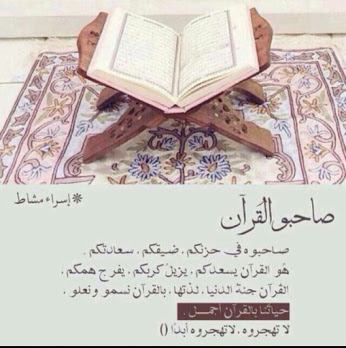 *إسراء مشاط
صاحبو القرآن
صاحبوه في حزنكم , ضيقكم , سعادتكم .
هو القرآن يسعدكم , يزيل كربكم , يفرج همكم .
القرآن جنة الدنيا , لذتها , بالقرآن نسمو ونعلو .
حياتنا بالقرآن أجمل .
لا تهجروه , لا تهجروه أبدًا ()